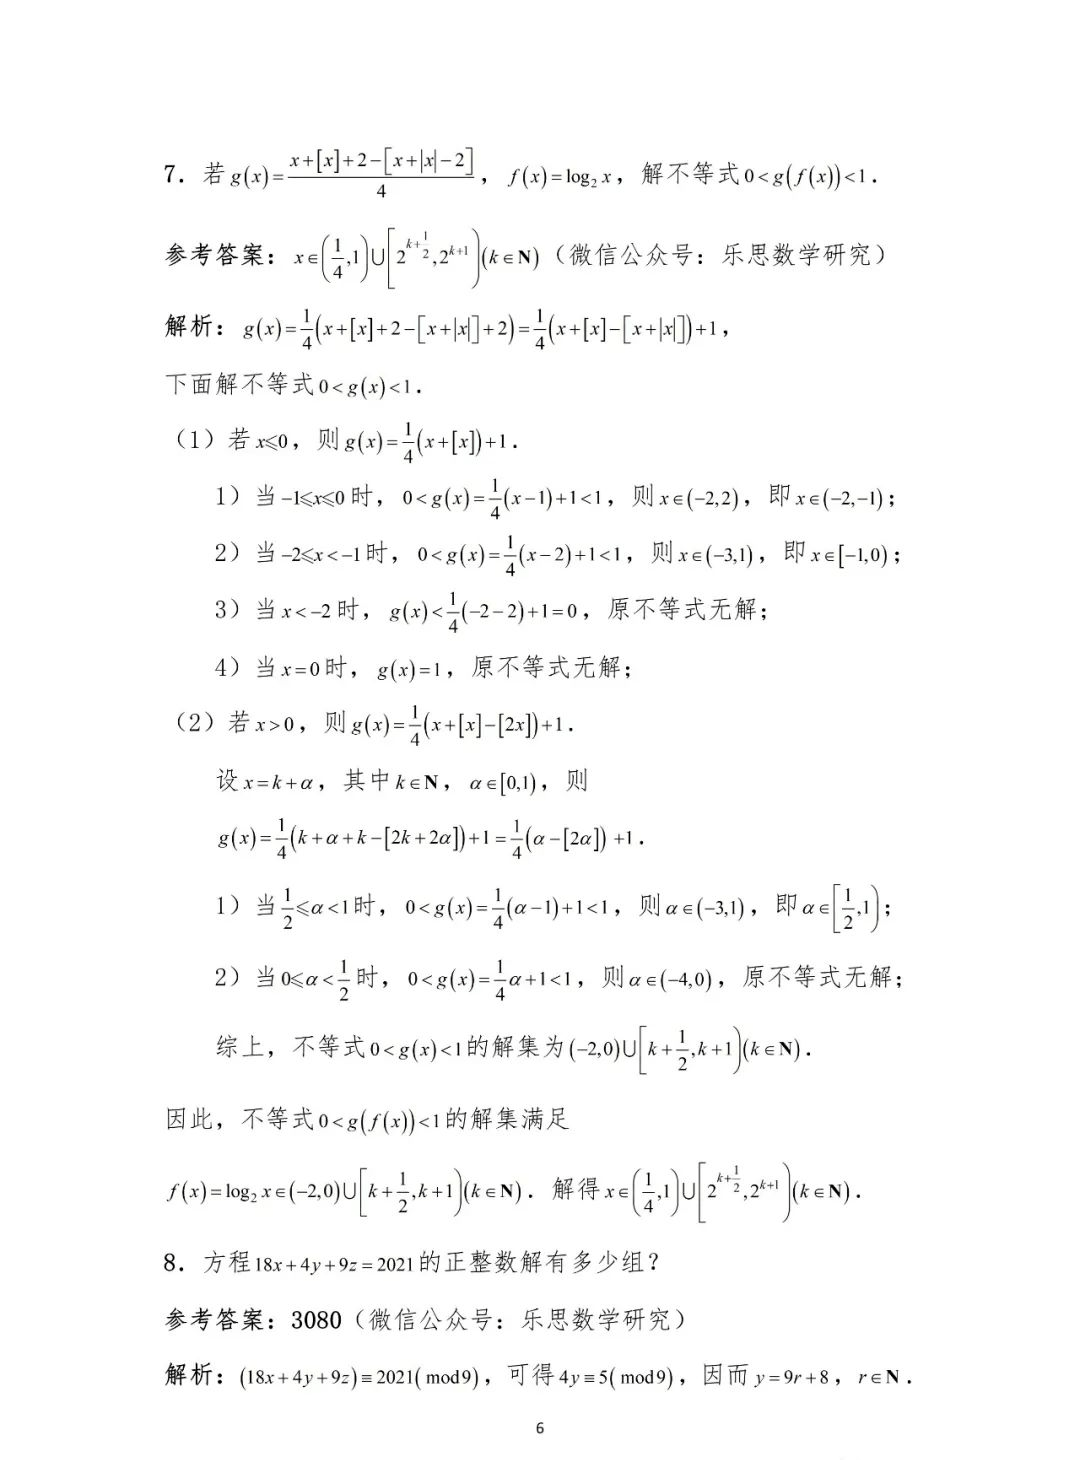 7. 若 g(x)=\frac{x+[x]+2-[x+|x|-2]}{4}，f(x)=log₂ x，解不等式 0<g(f(x))<1．
参考答案：x∈(\frac{1}{4},1)∪[2^{k+\frac{1}{2}},2^{k+1})(k∈N)（微信公众号：乐思数学研究）
解析：g(x)=\frac{1}{4}(x+[x]+2-[x+|x|]+2)=\frac{1}{4}(x+[x]-[x+|x|])+1，
下面解不等式 0<g(x)<1．
（1）若 x⩽0，则 g(x)=\frac{1}{4}(x+[x])+1．
1）当 -1⩽x⩽0 时，0<g(x)=\frac{1}{4}(x-1)+1<1，则 x∈(-2,2)，即 x∈(-2,-1)；
2）当 -2⩽x<-1 时，0<g(x)=\frac{1}{4}(x-2)+1<1，则 x∈(-3,1)，即 x∈[-1,0)；
3）当 x<-2 时，g(x)<\frac{1}{4}(-2-2)+1=0，原不等式无解；
4）当 x=0 时，g(x)=1，原不等式无解；
（2）若 x>0，则 g(x)=\frac{1}{4}(x+[x]-[2x])+1．
设 x=k+α，其中 k∈N，α∈[0,1)，则
g(x)=\frac{1}{4}(k+α+k-[2k+2α])+1=\frac{1}{4}(α-[2α])+1．
1）当 \frac{1}{2}⩽α<1 时，0<g(x)=\frac{1}{4}(α-1)+1<1，则 α∈(-3,1)，即 α∈[\frac{1}{2},1)；
2）当 0⩽α<\frac{1}{2} 时，0<g(x)=\frac{1}{4}α+1<1，则 α∈(-4,0)，原不等式无解；
综上，不等式 0<g(x)<1 的解集为 (-2,0)∪[k+\frac{1}{2},k+1)(k∈N)．
因此，不等式 0<g(f(x))<1 的解集满足
f(x)=log₂ x∈(-2,0)∪[k+\frac{1}{2},k+1)(k∈N)．解得 x∈(\frac{1}{4},1)∪[2^{k+\frac{1}{2}},2^{k+1})(k∈N)．
8. 方程 18x+4y+9z=2021 的正整数解有多少组？
参考答案：3080（微信公众号：乐思数学研究）
解析：(18x+4y+9z)≡2021(mod9)，可得 4y≡5(mod9)，因而 y=9r+8，r∈N．
6